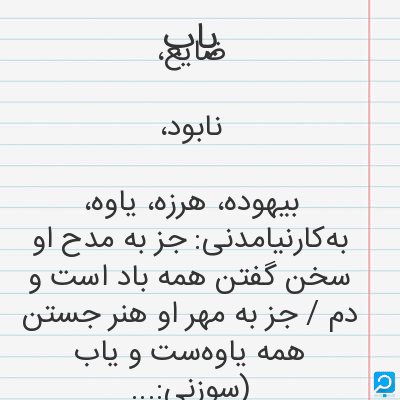 یاب
ضایع،
نابود،
بیهوده، هرزه، یاوه،
به‌کارنیامدنی: جز به مدح او
سخن گفتن همه باد است و
دم / جز به مهر او هنر جستن
همه یاوه‌ست و یاب
(سوزنی:...